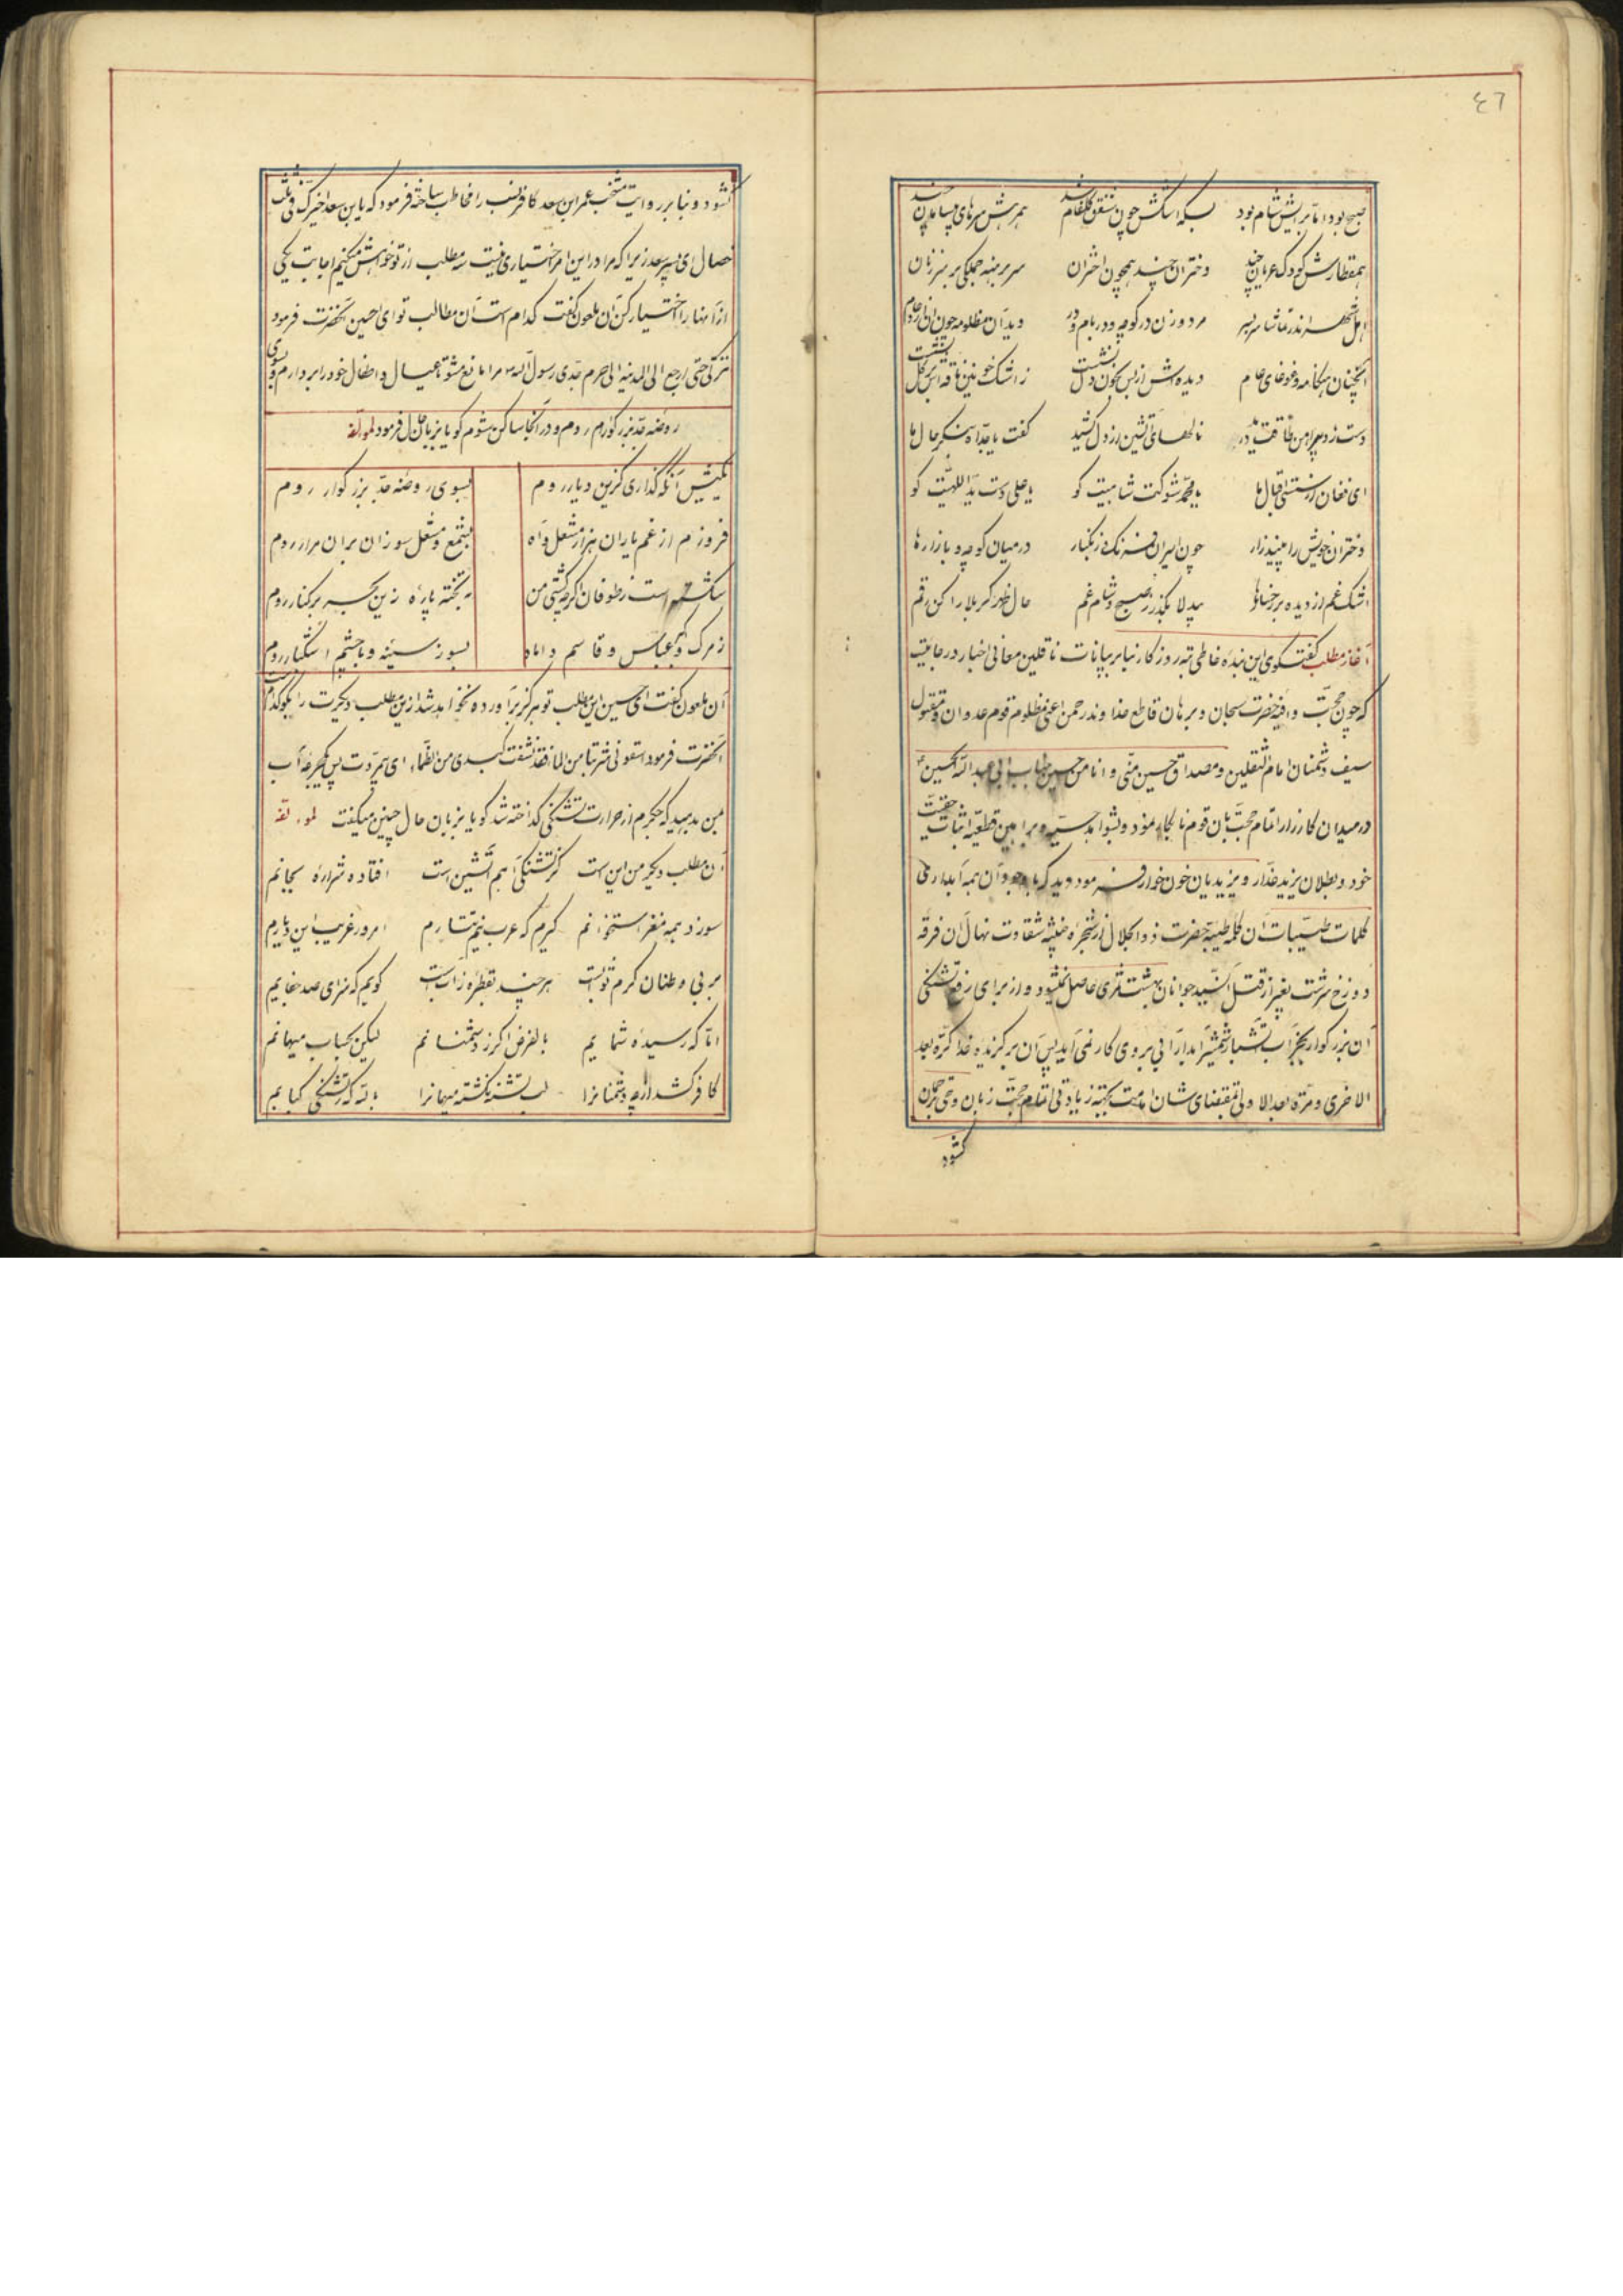 ٤٦
صبح بود اما برایش شام بود بسکه اشکش چون شفق گلفام شد همرهش سرهای
همقطارش کودک عریان چند دختران چند همچون اختران سر برهنه جملگی بر سر زنان
اهل شهر اندر تماشا سر بسر مرد و زن در کوچه و در بام و در دید آن مظلومه چون
آنچنان هنگامه و غوغای عام دیده اش از بس بخون دل نشست ز اشک خونین ناقه اش
دست زد پیراهن طاقت درید نالهای آتشین از دل کشید گفت یا جداه بنگر حال ما
ای فغان از سستی اقبال ما یا محمد شوکت شاهیت کو یا علی دست ید اللهیت کو
دختران خویش را بین زار زار چون اسیران فرنگ و زنگبار در میان کوچه و بازارها
اشک غم از دیده بر رخسارها بیدلا بگذر ز صبح و شام غم حال ظهر کربلا را کن رقم
آغاز مطلب گفتگوی این بنده خاطی تبه روزگار بنا بر بیانات ناقلین معانی اخبار در جائیست
که چون حجت وافیه حضرت سبحان و برهان قاطع خداوند رحمن اعنی مظلوم قوم عدوان و مقتول
سیف دشمنان امام الثقلین و مصداق حسین منی و انا من حسین جناب ابی عبد الله الحسین
در میدان کارزار اتمام حجت بان قوم نابکار نمود و بشواهد حسیه و براهین قطعیه اثبات حقیت
خود و بطلان یزید غدار و یزیدیان خون خوار فرمود دید که با وجود آن همه آبداری
کلمات طیبات آن کلمه طیبه حضرت ذو الجلال از شجره خبیثه شقاوت نهال آن فرقه
دوزخ سرشت بغیر از قتل آن سید جوانان بهشت ثمری حاصل نمیشود و از برای رفع تشنگی
آن بزرگوار بجز آب آتشبار شمشیر آبدار آبی بر روی کار نمی آید پس آن برگزیده خدا کرة بعد
الاخری و مرة بعد الاولی بمقتضای شان امامت بجهة زیادتی اتمام حجت زبان وحی ترجمان
گشود
گشود و بنا بر روایت منتخب عمر ابن سعد کافر نسب را مخاطب ساخته فرمود که یا بن سعد اخیرک فی ثلث
خصال ای پسر سعد زیرا که مرا در این امر اختیاری نیست سه مطلب از تو خواهش میکنم اجابت یکی
از آنها را اختیار کن آن ملعون گفت کدام است آن مطالب تو ای حسین آنحضرت فرمود
تترکنی حتی ارجع الی المدینه الی حرم جدی رسول الله مرا مانع مشو تا عیال و اطفال خود را بردارم و بسوی
روضه جد بزرگوارم روم و در آنجا ساکن شوم گویا بزبان حال فرمود لمؤلفه
بکیش آنکه گذاری کزین دیار روم بسوی روضه جد بزرگوار روم
فروزم از غم یاران هزار مشعل و آه بشمع و مشعل سوزان بران مزار روم
شکسته است ز طوفان اگرچه کشتی من به تخته پاره زین بحر بر کنار روم
ز مرگ اکبر و عباس و قاسم داماد بسوز سینه و با چشم اشکبار روم
آن ملعون گفت ای حسین این مطلب تو هرگز برآورده نخواهد شد ازین مطلب دیگرت را بگو کدام
آنحضرت فرمود اسقونی شربتا من الماء فقد نشفت کبدی من الظماء ای بیمروت پس یکجرعه آب
بمن بدهید که جگرم از حرارت تشنگی گداخته شد گویا بزبان حال چنین میگفت لمؤلفه
آن مطلب دیگر من این است کز تشنگی آهم آتشین است افتاده شراره بجانم
سوزد همه مغز استخوانم گیرم که عرب نیم تبارم امروز غریب این دیارم
بر بی وطنان کرم ثوابست هر چند بقطره ز آبست گویم که سزای صد جفایم
اما که رسیده شمایم بالفرض اگر ز دشمنانم لیکن بحساب میهمانم
کافر کشد ار چه دشمنانرا لب تشنه نکشته میهمانرا بالله که ز تشنگی کبابم